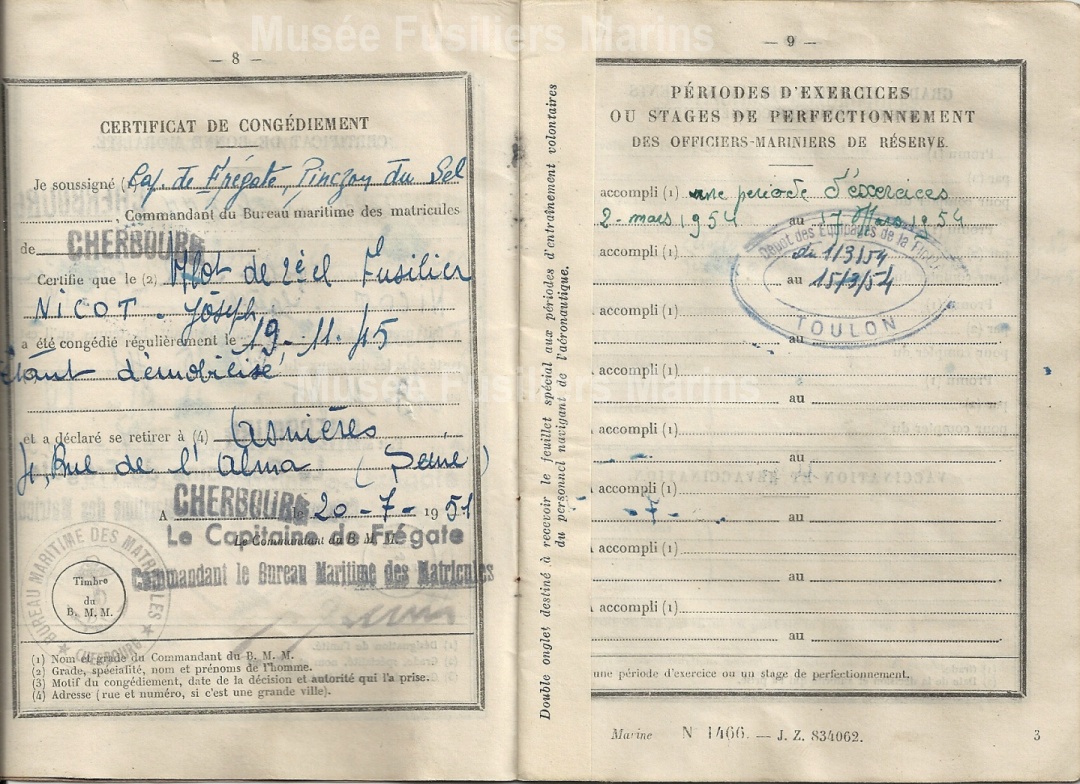 Musée Fusiliers Marins
— 8 —
CERTIFICAT DE CONGÉDIEMENT
Je soussigné (1) Cap. de Frégate, Pinczon du Sel
, Commandant du Bureau maritime des matricules
de CHERBOURG
Certifie que le (2) Mlot de 2è cl Fusilier
NICOT - Joseph
a été congédié régulièrement le 19-11-45
étant démobilisé
et a déclaré se retirer à (4) Asnières
Rue de l'Alma (Seine)
A CHERBOURG le 20-7-1951
Le Capitaine de Frégate
Le Commandant du B. M. M.
Commandant le Bureau Maritime des Matricules
Timbre
du
B. M. M.
BUREAU MARITIME DES MATRICULES
CHERBOURG
(1) Nom et grade du Commandant du B. M. M.
(2) Grade, spécialité, nom et prénoms de l'homme.
(3) Motif du congédiement, date de la décision et autorité qui l'a prise.
(4) Adresse (rue et numéro, si c'est une grande ville).
Double onglet destiné à recevoir le feuillet spécial aux périodes d'entraînement volontaires
du personnel navigant de l'aéronautique.
— 9 —
PÉRIODES D'EXERCICES
OU STAGES DE PERFECTIONNEMENT
DES OFFICIERS-MARINIERS DE RÉSERVE
accompli (1) une période d'exercices
2 - mars 1954 au 17 Mars 1954
Dépôt des Équipages de la Flotte
accompli (1) du 1/3/54
au 15/3/54
TOULON
accompli (1)
au
accompli (1)
au
accompli (1)
au
accompli (1)
- 7 - au
accompli (1)
au
accompli (1)
au
une période d'exercice ou un stage de perfectionnement.
Marine N 1466. — J. Z. 834062.
3
Musée Fusiliers Marins